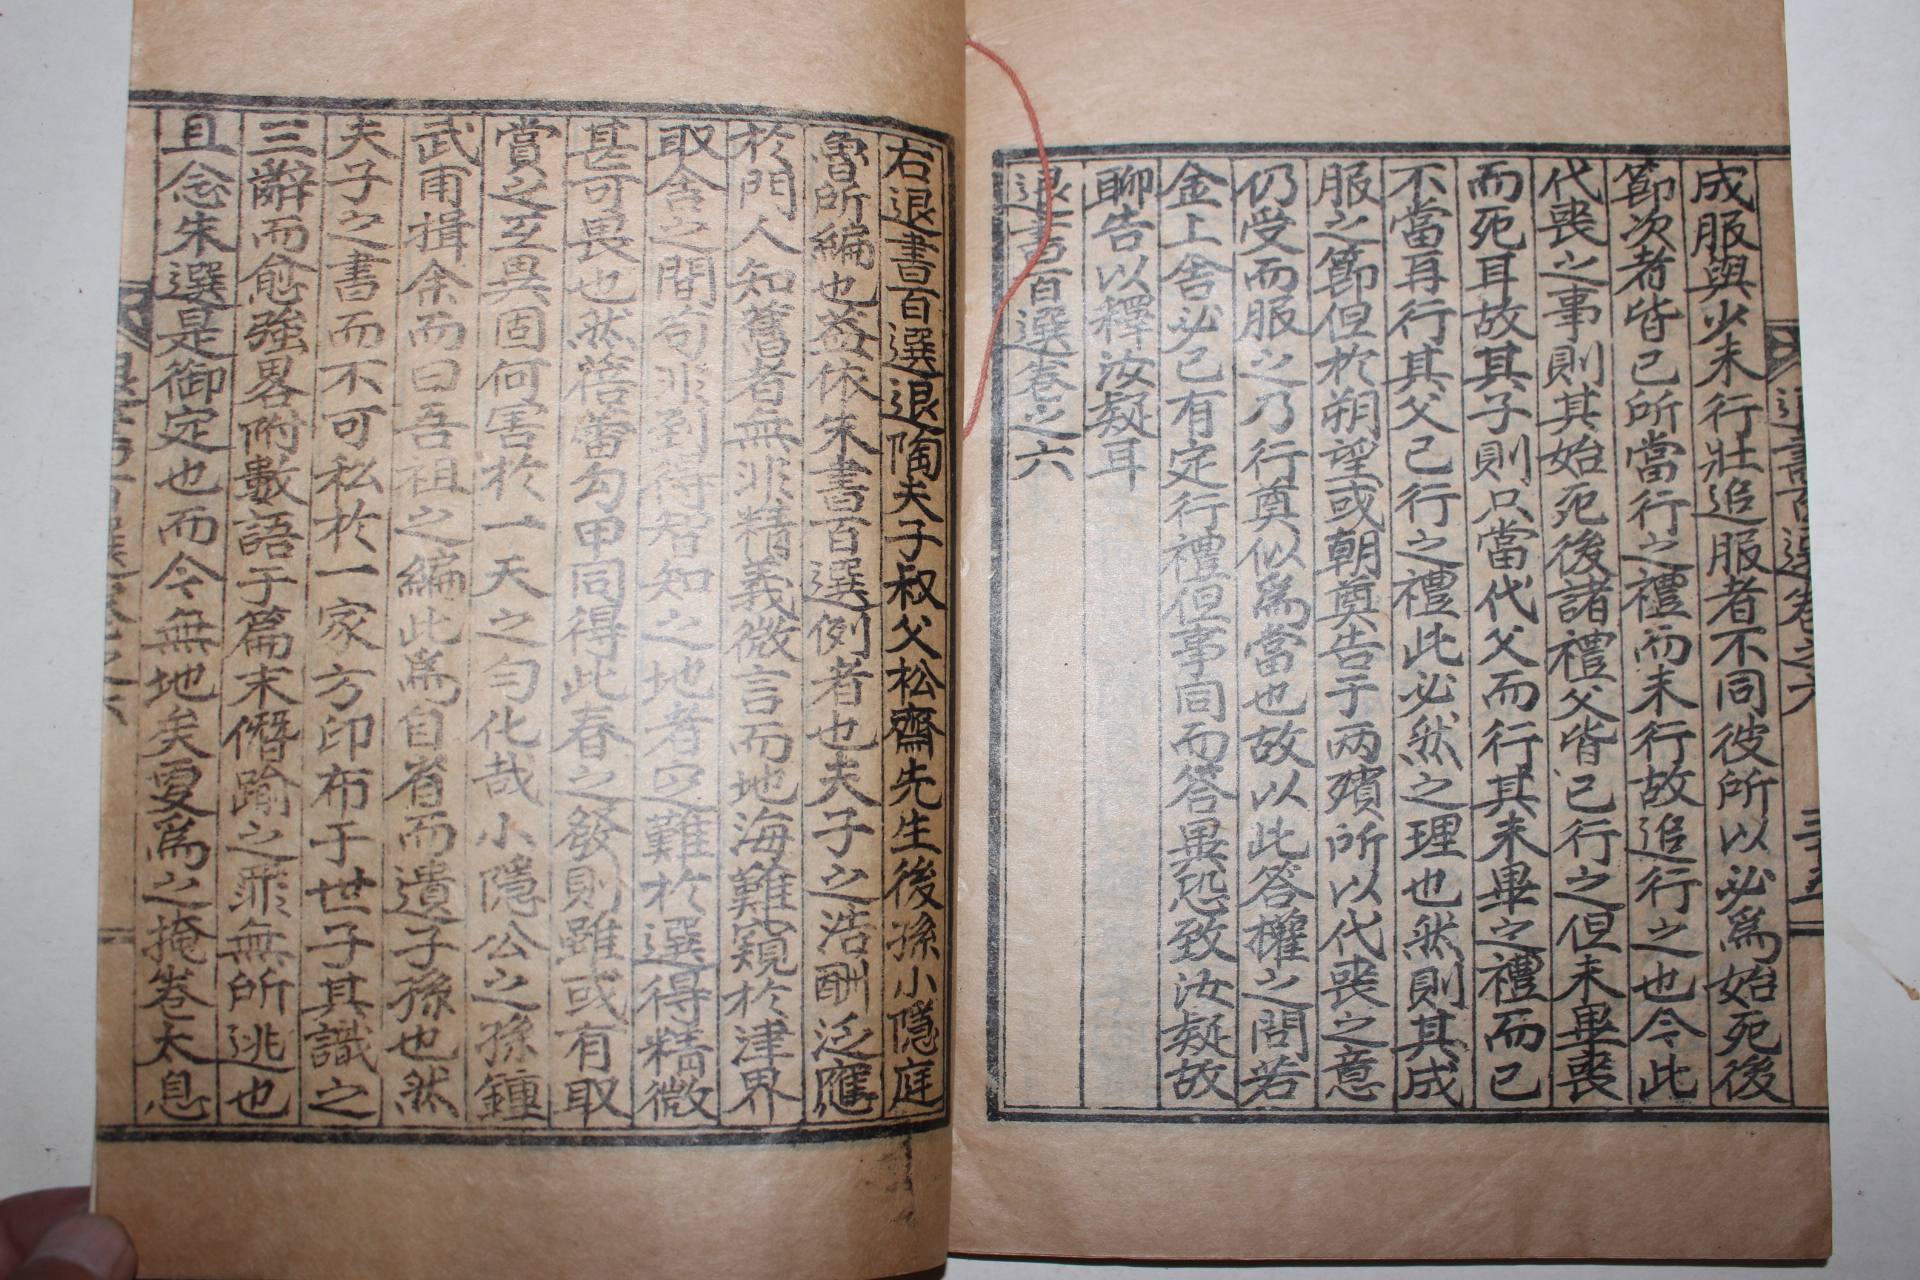 成服與少未行壯追服者不同彼所以必爲始死後
節次者皆已所當行之禮而未行故追行之也今此
代喪之事則其始死後諸禮父皆已行之但未畢喪
而死耳故其子則只當代父而行其未畢之禮而已
不當再行其父已行之禮此必然之理也然則其成
服之節但於朔望或朝奠告于两殯所以代喪之意
仍受而服之乃行奠似爲當也故以此答權之問若
金上舍必已有定行禮但事同而答異恐致汝疑故
聊告以釋汝疑耳
退書百選卷之六
右退書百選退陶夫子叔父松齋先生後孫小隱庭
魯所編也益依朱書百選例者也夫子之浩酬泛應
於門人知舊者無非精義微言而地海難窺於津界
取舍之間苟非到得智知之地者之難於選得精微
甚可畏也然蓓蕾勾甲同得此春之發則雖或有取
賞之互異固何害於一天之勻化哉小隱公之孫鍾
武甫揖余而曰吾祖之編此爲自省而遺子孫也然
夫子之書而不可私於一家方印布于世子其識之
三辭而愈強畧附數語于篇末僭踰之罪無所逃也
且念朱選是御定也而今無地矣更爲之掩卷太息
退書百選卷之六